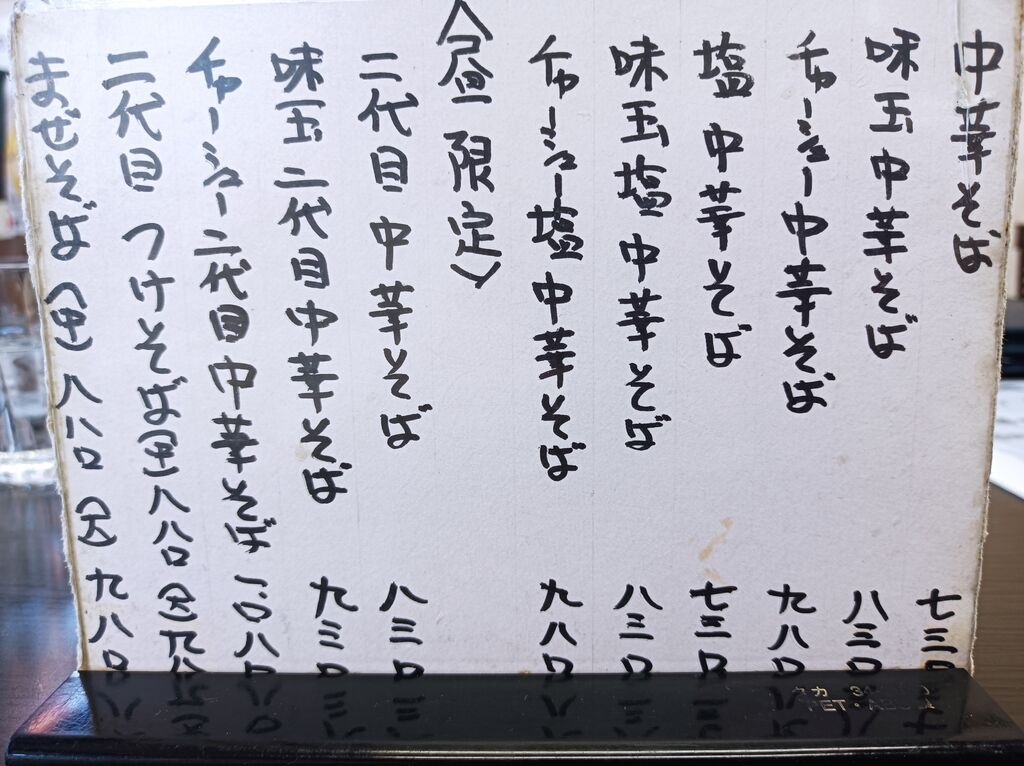 中華そば 七三〇
味玉中華そば 八三〇
チャーシュー中華そば 九八〇
塩中華そば 七三〇
味玉塩中華そば 八三〇
チャーシュー塩中華そば 九八〇
〈昼限定〉
二代目中華そば 八三〇
味玉二代目中華そば 九三〇
チャーシュー二代目中華そば 一、〇八〇
二代目つけそば(中)八八〇(大)九八
まぜそば(中)八八〇(大)九八〇